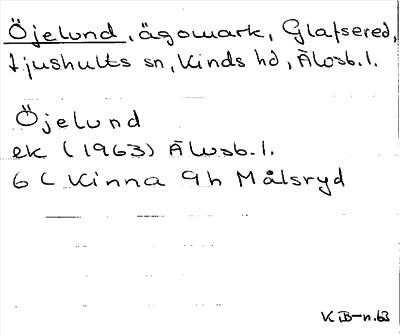 Öjelund, ägomark, Glafsered,
Ljushults sn, Kinds hd, Älvsb. l.
Öjelund
ek (1963) Älvsb. l.
6 C Kinna 9h Målsryd